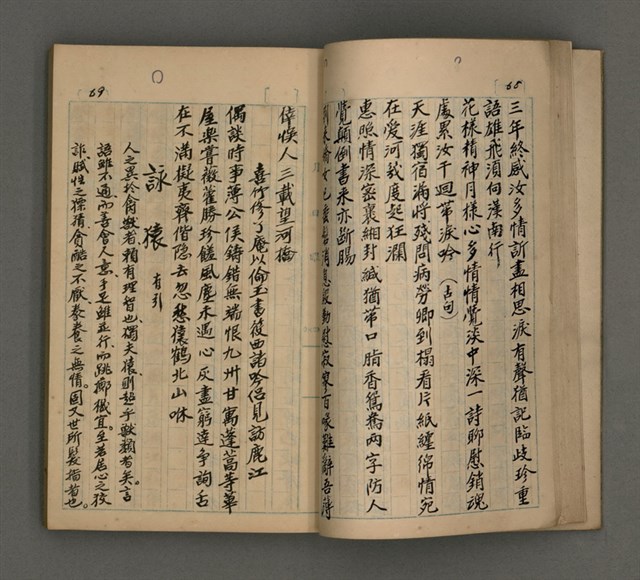 68
三年終感汝多情訴盡相思淚有聲猶記臨歧珍重
語雄飛須向漢南行
花樣精神月樣心多情情覺淡中深一詩聊慰銷魂
處累汝千回帶淚吟 (古句)
天涯獨宿滿將殘問病勞卿到榻看片紙纏綿情宛
在愛河我度起狂瀾
惠照情深密裹細封緘猶帶口脂香鴛鴦兩字防人
覺顛倒書來亦斷腸
69
倖悞人三載望河橋
喜竹修了庵以倫玉書筱西諸吟侶見訪鹿江
偶談時事薄公侯鑄錯無端恨九州甘寓蓬蒿等華
屋樂嘗藜藿勝珍饈風塵未遇心灰盡窮達爭詢舌
在不滿擬夷齊偕隱去忽愁猿鶴北山咻
詠猿 有引
人之異於禽獸者賴有理智也獨夫猿則超乎獸類者矣言
語雖不通而善會人意手足雖並行而跳擲機宜至若居心之狡
詐賦性之猜貪酷之不厭豢養之無情固又世所髮指者也。